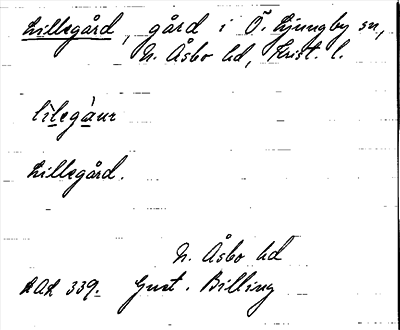 Lillegård, gård i Ö. Ljungby sn,
N. Åsbo hd, Krist. l.
lilegàur
Lillegård.
N. Åsbo hd
RAÄ 339. Gust. Billing